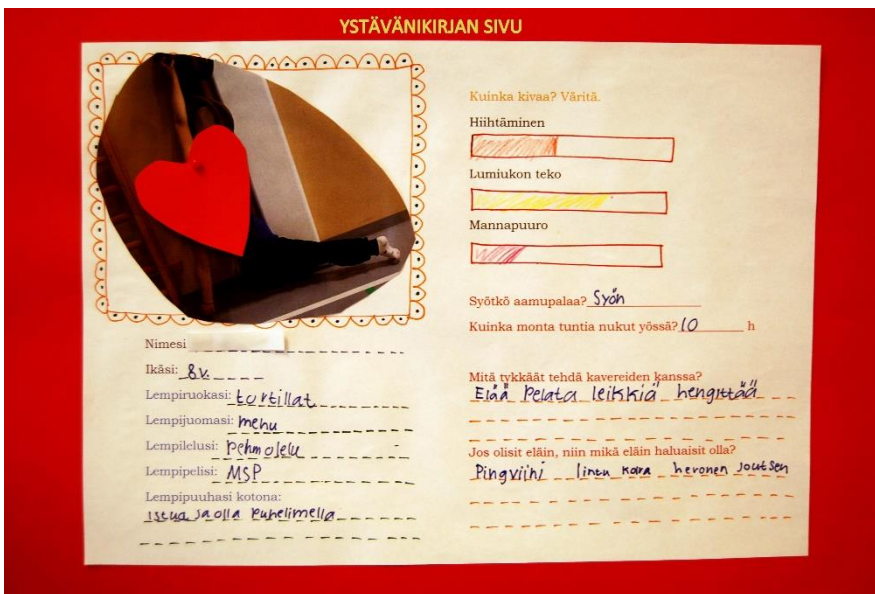 YSTÄVÄNIKIRJAN SIVU
Nimesi
Ikäsi: 8v.
Lempiruokasi: tortillat
Lempijuomasi: mehu
Lempilelusi: Pehmolelu
Lempipelisi: MSP
Lempipuuhasi kotona:
istua ja olla puhelimella
Kuinka kivaa? Väritä.
Hiihtäminen
Lumiukon teko
Mannapuuro
Syötkö aamupalaa? Syön
Kuinka monta tuntia nukut yössä? 10 h
Mitä tykkäät tehdä kavereiden kanssa?
Elää Pelata leikkiä hengittää
Jos olisit eläin, niin mikä eläin haluaisit olla?
Pingviini lintu koira hevonen joutsen